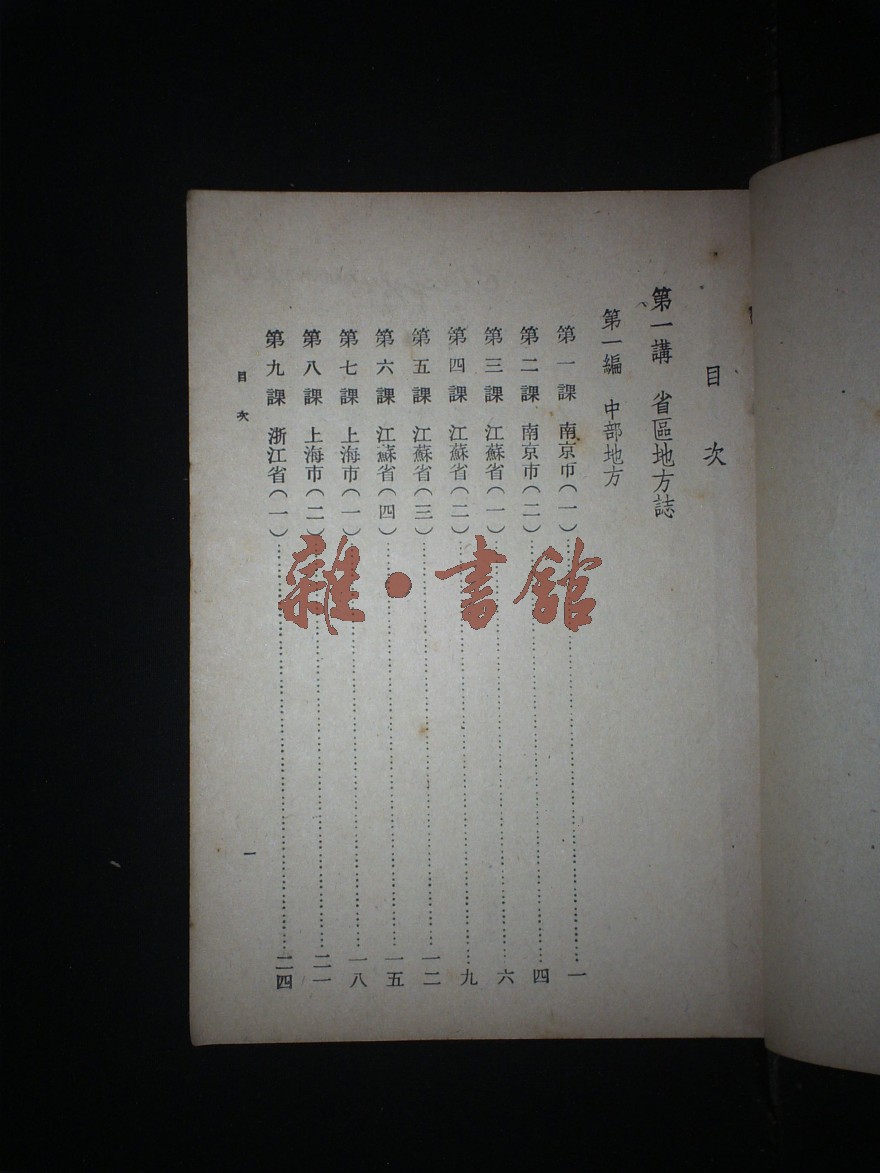 目次
第一講 省區地方誌
第一編 中部地方
第一課 南京市(一)……一
第二課 南京市(二)……四
第三課 江蘇省(一)……六
第四課 江蘇省(二)……九
第五課 江蘇省(三)……一二
第六課 江蘇省(四)……一五
第七課 上海市(一)……一八
第八課 上海市(二)……二一
第九課 浙江省(一)……二四
目次 一
雜·書館